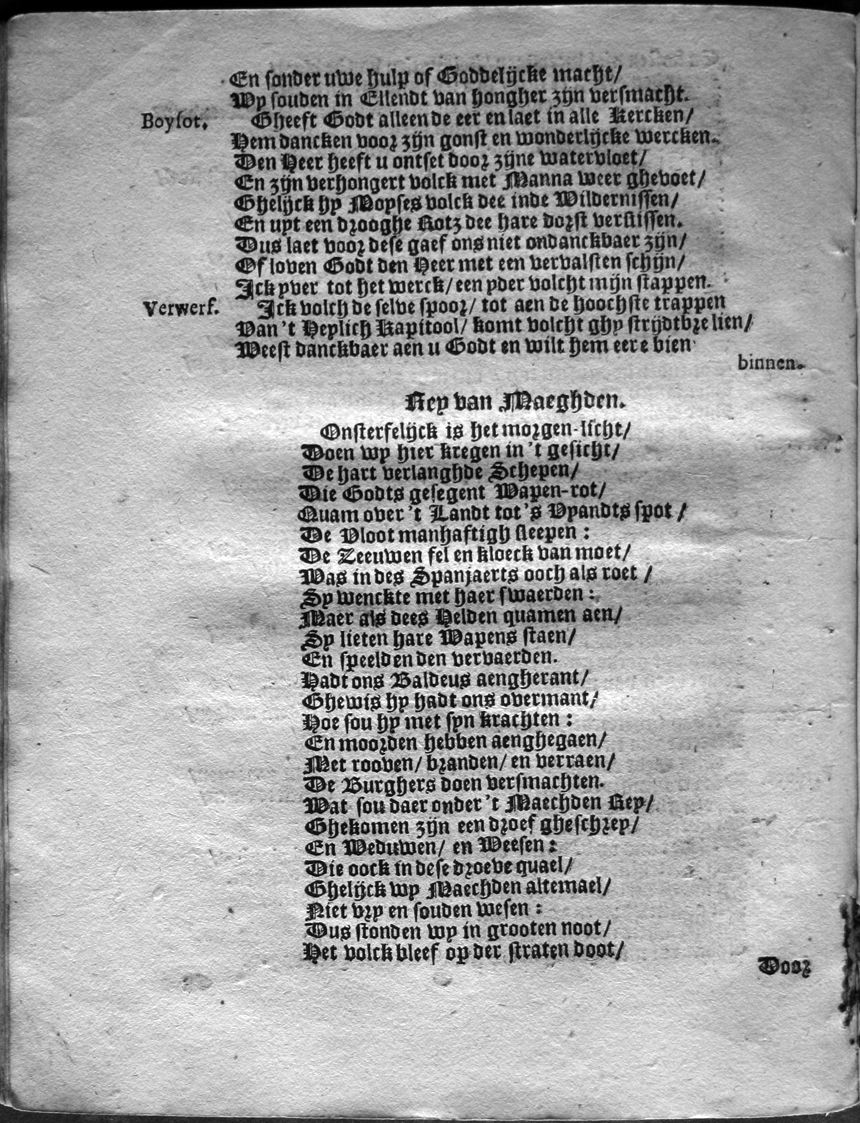 En sonder uwe hulp of Goddelijcke macht/
Wy souden in Ellendt van hongher zijn versmacht.
Boysot. Gheeft Godt alleen de eer en laet in alle Kercken/
Hem dancken voor zijn gonst en wonderlijcke wercken.
Den Heer heeft u ontset door zijne watervloet/
En zijn verhongert volck met Manna weer ghevoet/
Ghelijck hy Moyses volck dee inde Wildernissen/
En uyt een drooghe Rotz dee hare dorst verslissen.
Dus laet voor dese gaef ons niet ondanckbaer zijn/
Of loven Godt den Heer met een vervalsten schijn/
Ick yver tot het werck/ een yder volcht mijn stappen.
Verwerf. Ick volch de selve spoor/ tot aen de hoochste trappen
Van 't Heylich Kapitool/ komt volcht ghy strijdtbre lien/
Weest danckbaer aen u Godt en wilt hem eere bien
binnen.
Rey van Maeghden.
Onsterfelijck is het morgen-licht/
Doen wy hier kregen in 't gesicht/
De hart verlanghde Schepen/
Die Godts gesegent Wapen-rot/
Quam over 't Landt tot 's Vyandts spot/
De Vloot manhaftigh sleepen:
De Zeeuwen fel en kloeck van moet/
Was in des Spanjaerts ooch als roet/
Sy wenckte met haer swaerden:
Maer als dees Helden quamen aen/
Sy lieten hare Wapens staen/
En speelden den vervaerden.
Hadt ons Baldeus aengherant/
Ghewis hy hadt ons overmant/
Hoe sou hy met syn krachten:
En moorden hebben aenghegaen/
Met rooven/ branden/ en verraen/
De Burghers doen versmachten.
Wat sou daer onder 't Maechden Rey/
Ghekomen zijn een droef gheschrey/
En Weduwen/ en Weesen:
Die oock in dese droeve quael/
Ghelijck wy Maechden altemael/
Niet vry en souden wesen:
Dus stonden wy in grooten noot/
Het volck bleef op der straten doot/
Door